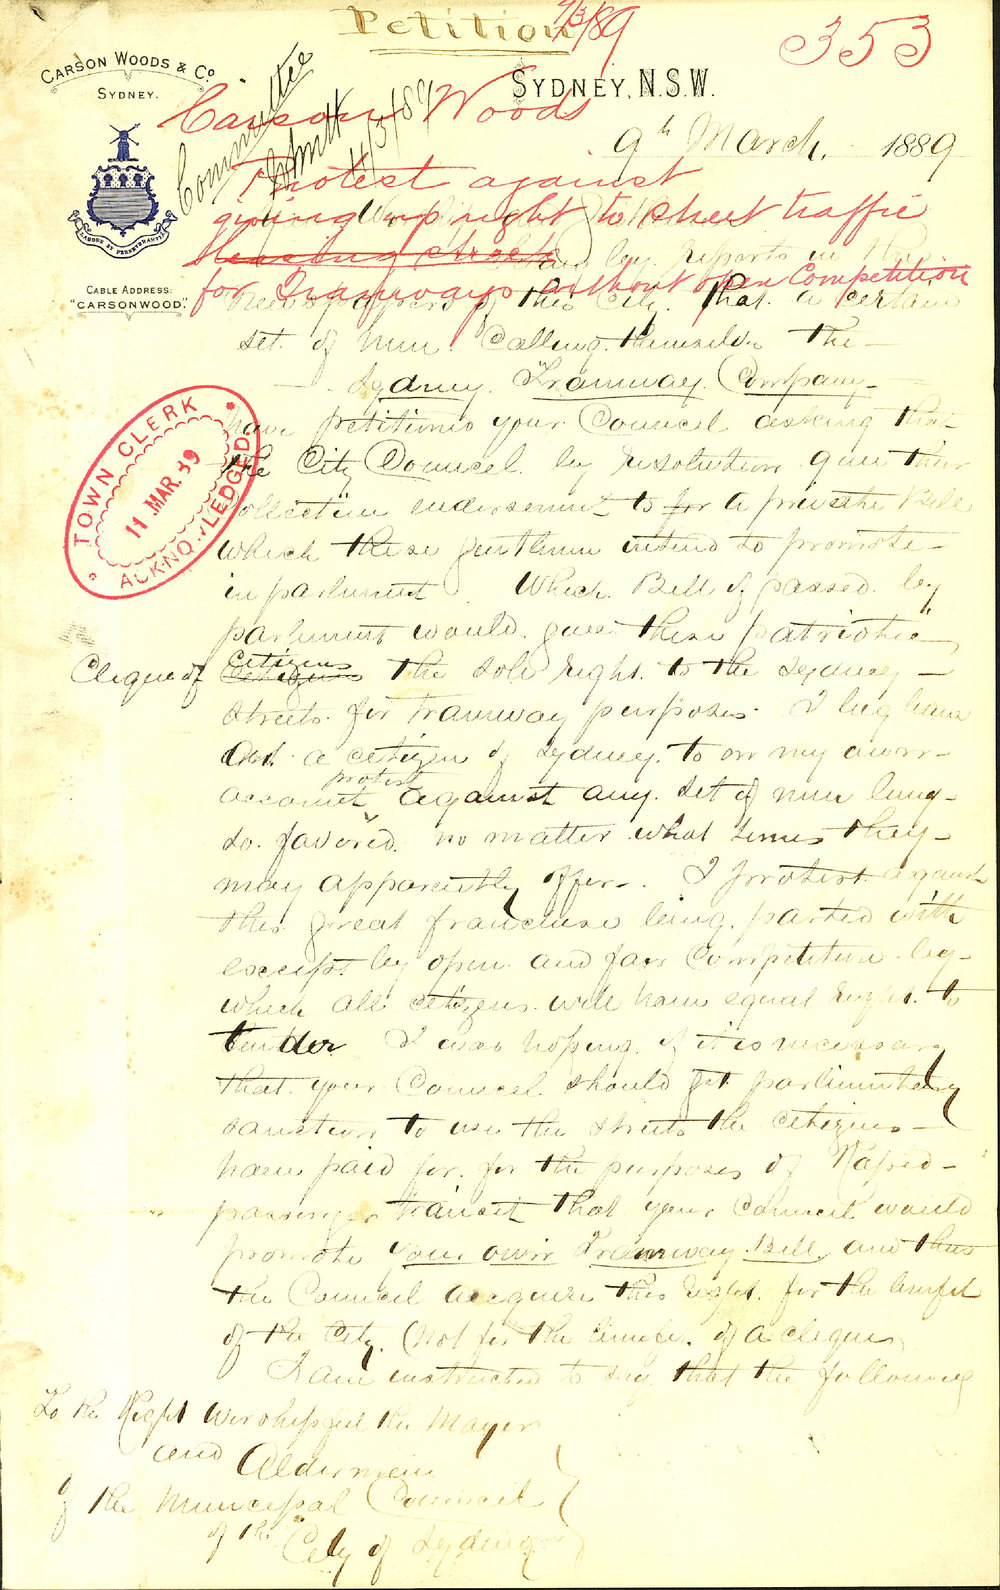 Petition
9/3/89
353
CARSON WOODS & Co
SYDNEY.
SYDNEY, N.S.W.
9th March. 1889
Committee
11/3/89
Carson Woods
Protest against
giving up right to street traffic
for Tramways without open Competition
LABORE ET PERSEVERANTIA
CABLE ADDRESS:
"CARSONWOOD."
by reports in the
News papers of this City. that a certain
set. of men. Calling. themselves The
Sydney. Tramway. Company
have petitioned your Council asking that
the City Council. by resolution give their
collective endorsement to for a private Bill
which these gentlemen intend to promote
in parliment. Which Bill if passed. by
parliment would. give these patriotic
Clique of citizens the sole right. to the Sydney
streets. for tramway purposes. I beg leave
and. a citizen of Sydney. to on my own
account protest against any. set of men being
so. favored. no matter what terms they
may apparently offer. I protest against
this great franchise being. parted with
except by open and fair Competition by
which all citizens will have equal right. to
tender I was hoping. if it is necessary
that your Council should get parlimentary
sanction to use the streets the citizens
have paid for. for the purposes of Rapid
passenger transit that your Council would
promote your own Tramway Bill, and thus
the Council acquire this right. for the benefit
of the City. (not for the benefit. of a clique)
I am instructed to say that the following
To the Right Worshipful the Mayor
and Aldermen
of the Municipal Council
of the City of Sydney
TOWN CLERK
11 MAR. 89
ACKNOWLEDGED